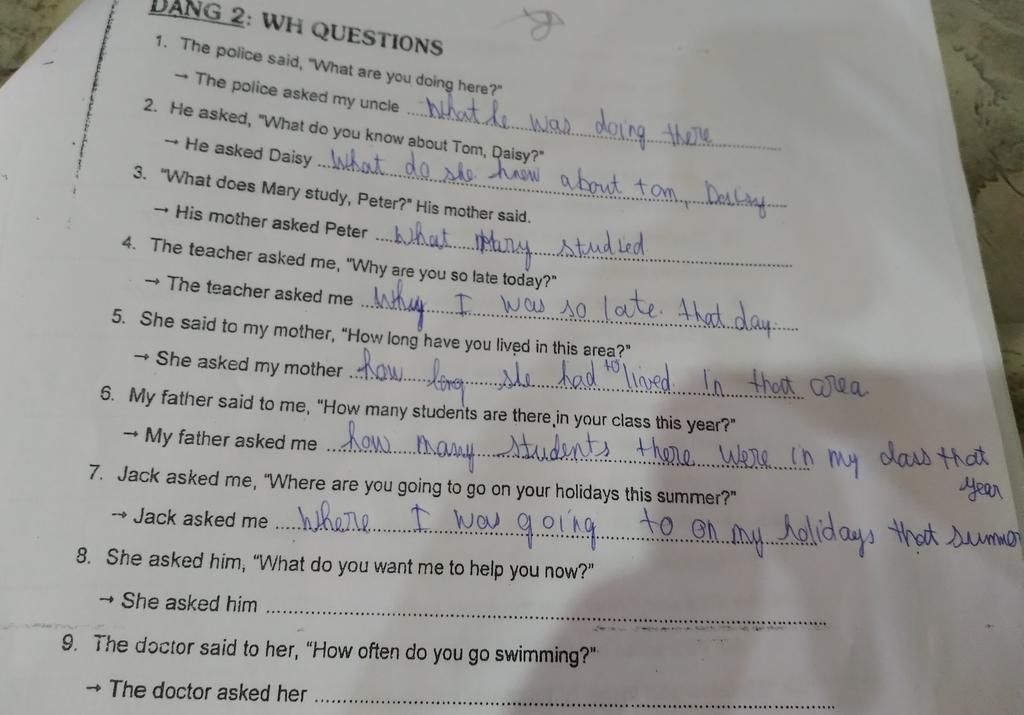 DẠNG 2: WH QUESTIONS
1. The police said, "What are you doing here?"
→ The police asked my uncle What he was doing there
2. He asked, "What do you know about Tom, Daisy?"
→ He asked Daisy What do she know about tom,
3. "What does Mary study, Peter?" His mother said.
→ His mother asked Peter What Mary studied
4. The teacher asked me, "Why are you so late today?"
→ The teacher asked me Why I was so late that day.
5. She said to my mother, "How long have you lived in this area?"
→ She asked my mother how long she had to lived In that area.
6. My father said to me, "How many students are there in your class this year?"
→ My father asked me how many students there were in my class that
year
7. Jack asked me, "Where are you going to go on your holidays this summer?"
→ Jack asked me Where I was going to on my holidays that summer
8. She asked him, "What do you want me to help you now?"
→ She asked him
9. The doctor said to her, "How often do you go swimming?"
→ The doctor asked her